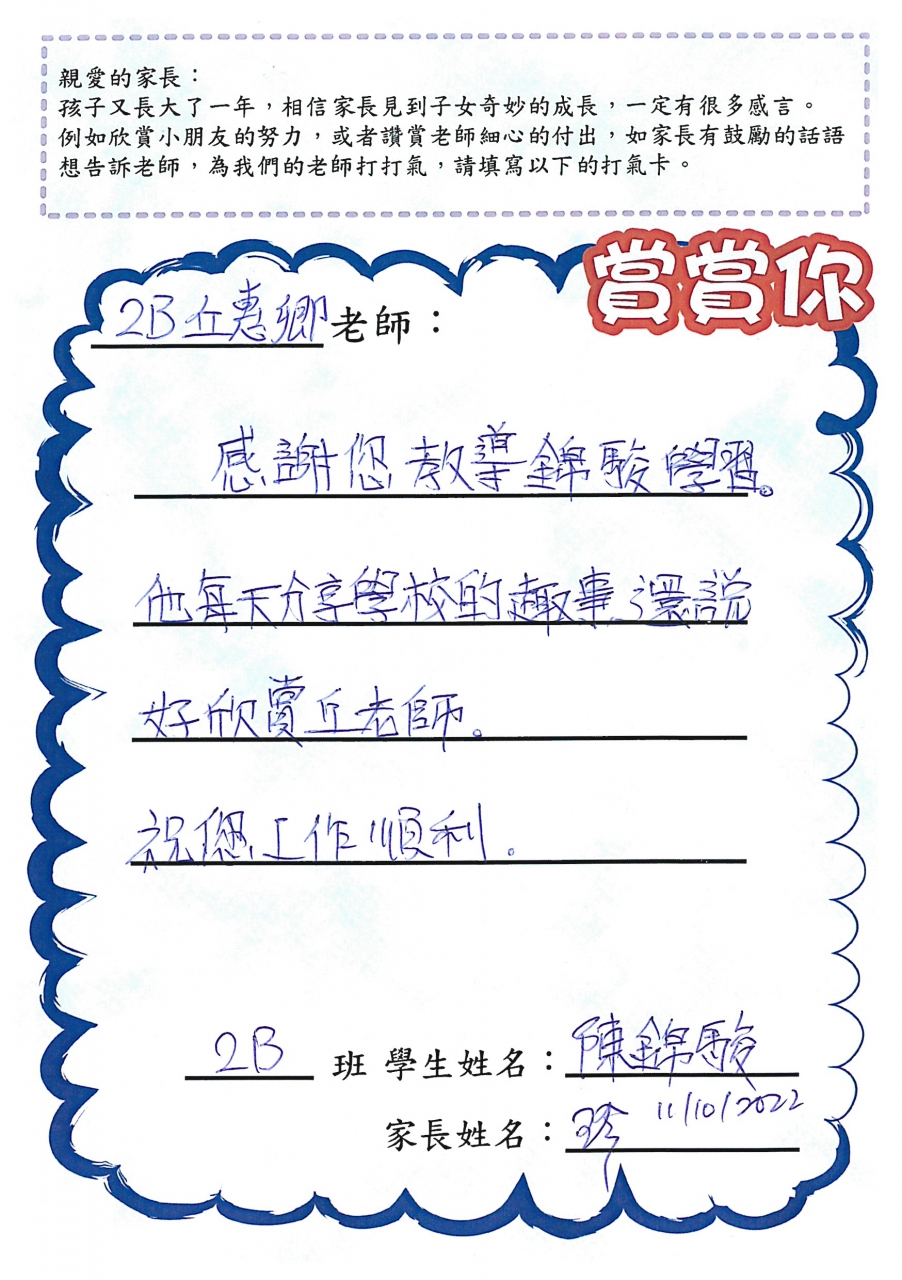 親愛的家長：
孩子又長大了一年，相信家長見到子女奇妙的成長，一定有很多感言。
例如欣賞小朋友的努力，或者讚賞老師細心的付出，如家長有鼓勵的話語
想告訴老師，為我們的老師打打氣，請填寫以下的打氣卡。
賞賞你
2B丘惠卿老師：
感謝您教導錦駿學習。
他每天分享學校的趣事，還說
好欣賞丘老師。
祝您工作順利。
2B 班 學生姓名：陳錦駿
家長姓名：珍 11/10/2022